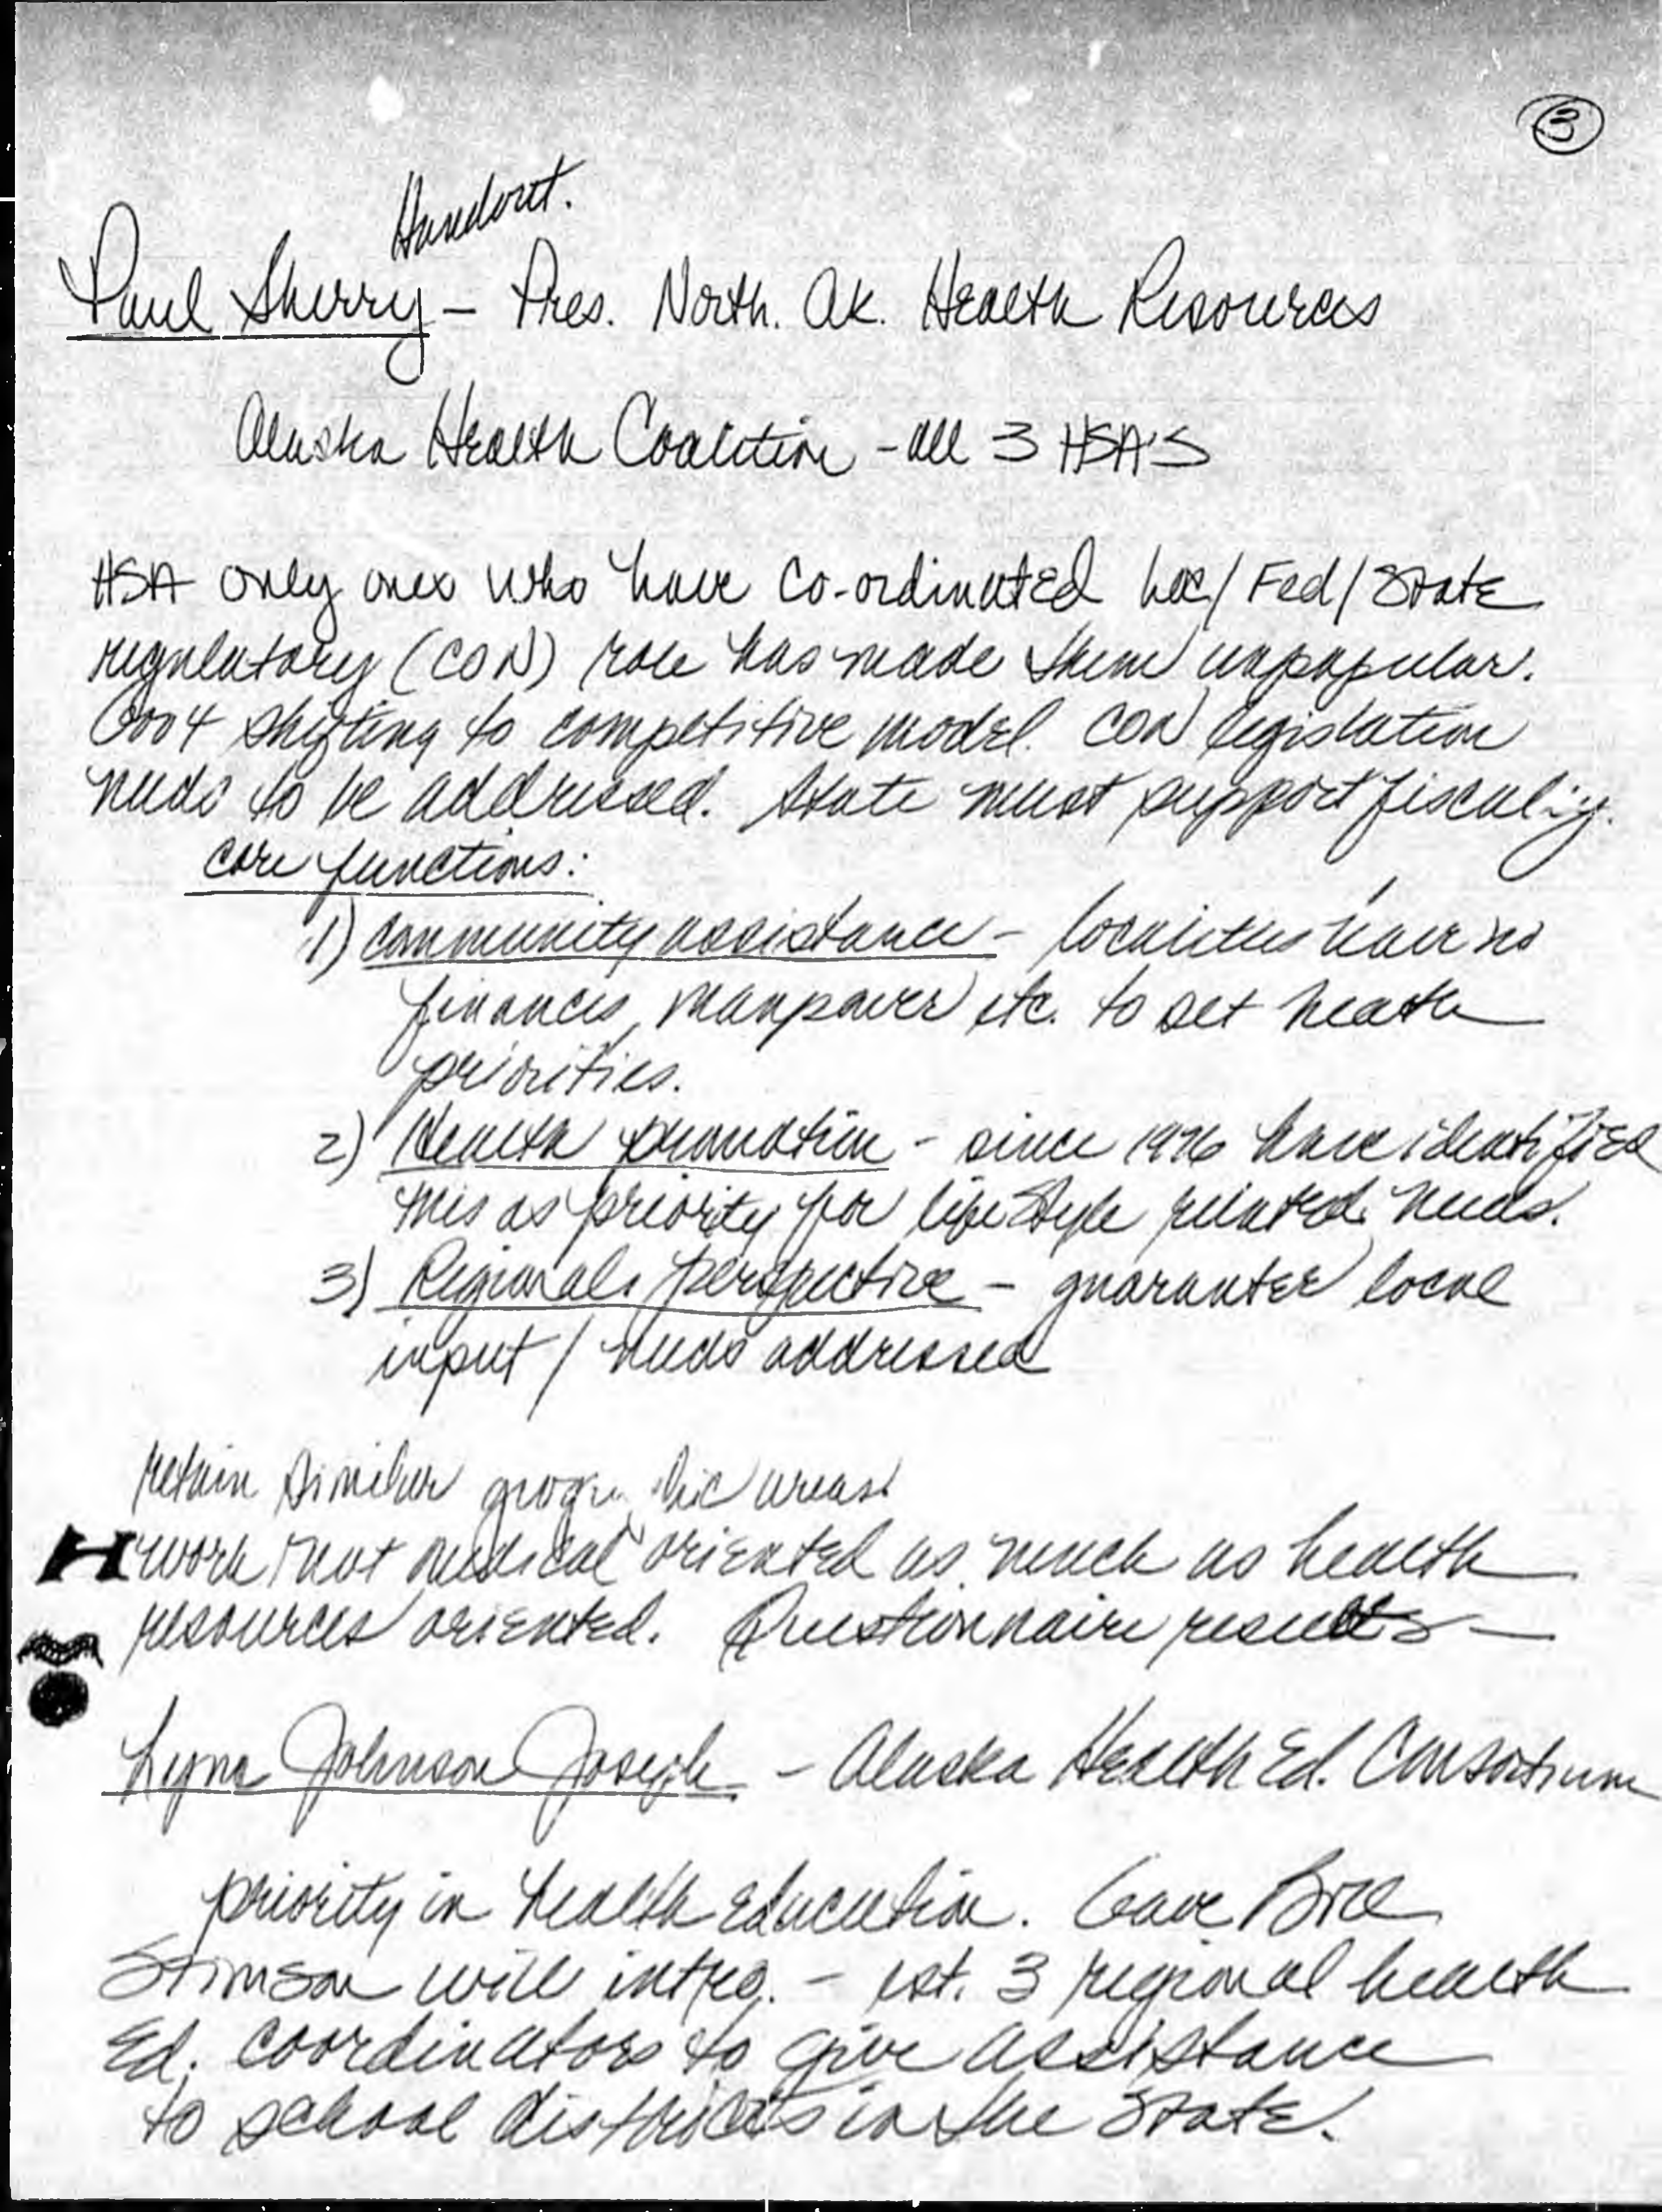 3
Handout.
Paul Sherry - Pres. North. Ak. Health Resources
Alaska Health Coalition - all 3 HSA'S
HSA only ones who have co-ordinated loc/Fed/State
regulatory (CON) role has made them unpopular.
Gov't shifting to competitive model. CON legislation
needs to be addressed. State must support fiscally.
core functions:
1) community assistance - localities have no
finances, manpower etc. to set heath
priorities.
2) Health promotion - since 1976 have identified
this as priority for lifestyle related needs.
3) Regional perspective - guarantee local
input / needs addressed
retain similar areas
work not medical oriented as much as health
resources oriented. Questionnaire results -
Lynn Johnson Joseph - Alaska Health Ed. Consortium
priority in health education. Gave Bill
Stimson will integ. - est. 3 regional health
Ed. coordinators to give assistance
to school districts in the State.